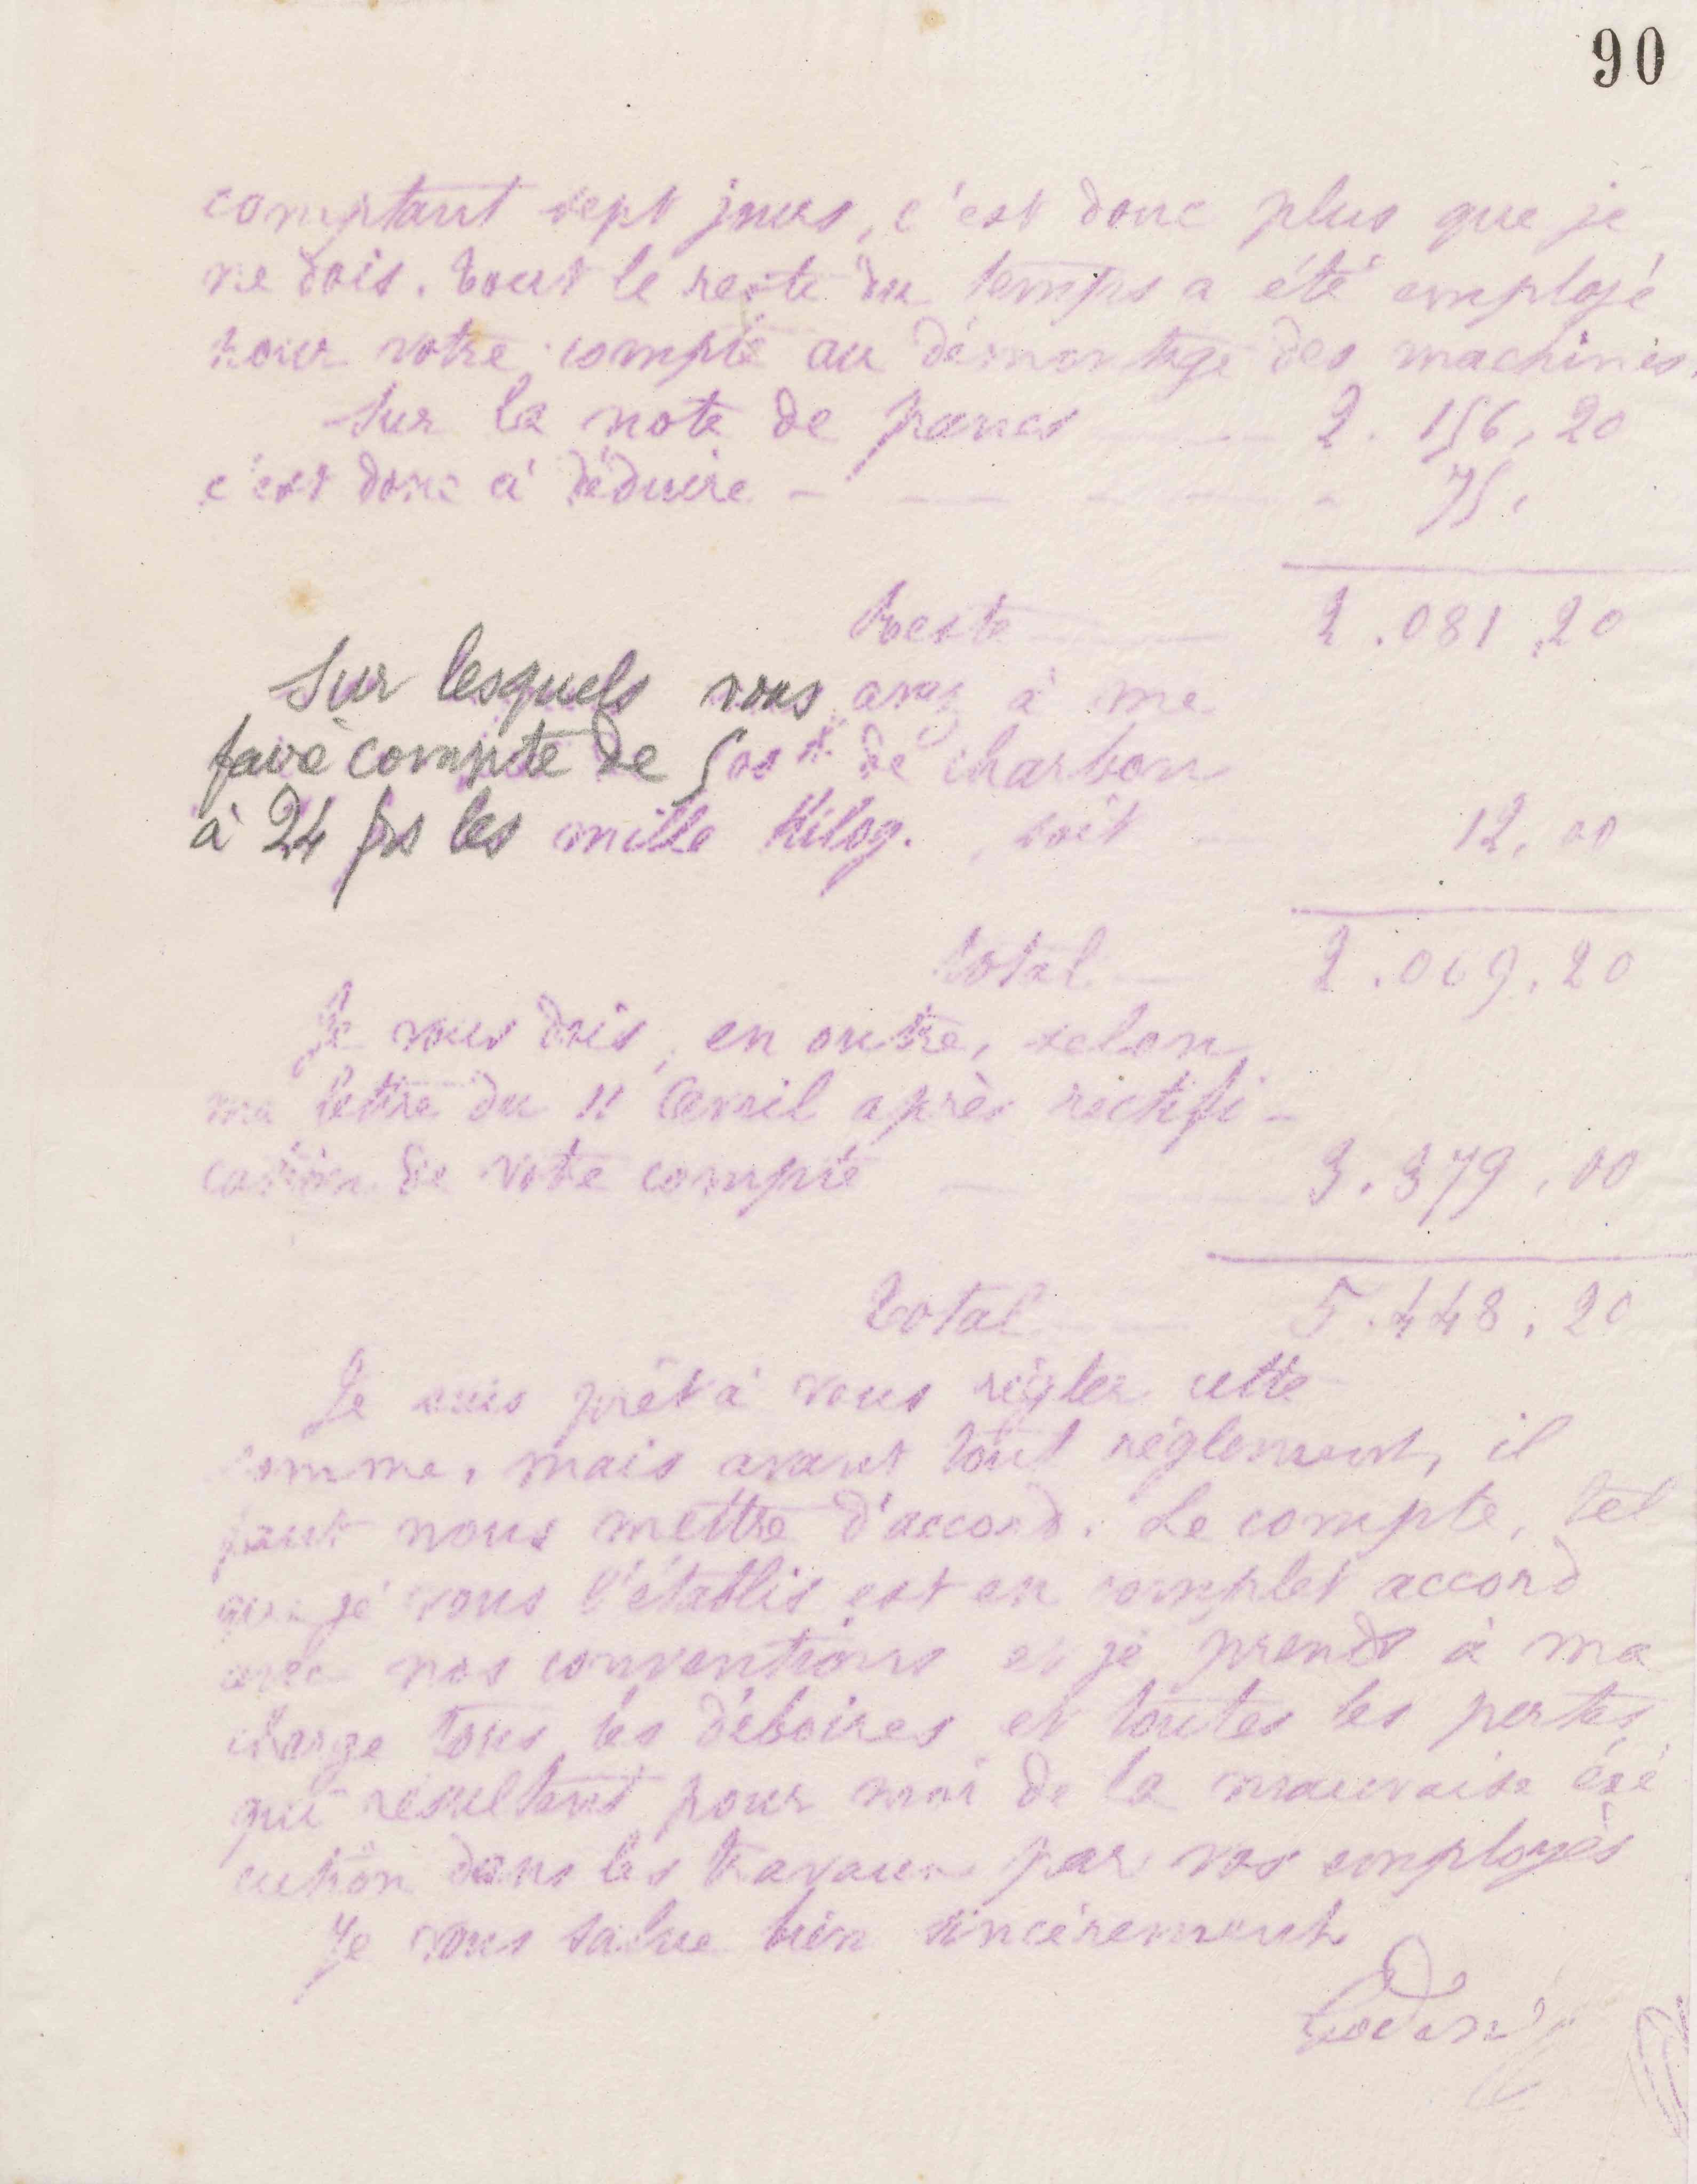 90
comptant sept jours, c'est donc plus que je
ne dois. Tout le reste du temps a été employé
pour votre compte au démontage des machines.
Sur la note de francs 2.156,20
c'est donc à déduire - 75,
Reste 2.081,20
Sur lesquels vous avez à me
faire compte de 500 k de charbon
à 24 frs les mille Kilog., soit 12,00
total 2.069,20
Je vous dois, en outre, selon
ma lettre du 11 Avril après rectifi-
cation de votre compte 3.379,00
Total 5.448,20
Je suis prêt à vous régler cette
somme, mais avant tout règlement, il
faut nous mettre d'accord. Le compte, tel
que je vous l'établis est en complet accord
avec nos conventions et je prends à ma
charge tous les déboires et toutes les pertes
qui résultent pour moi de la mauvaise exé
cution dans les travaux par vos employés
Je vous salue bien sincèrement
Godin